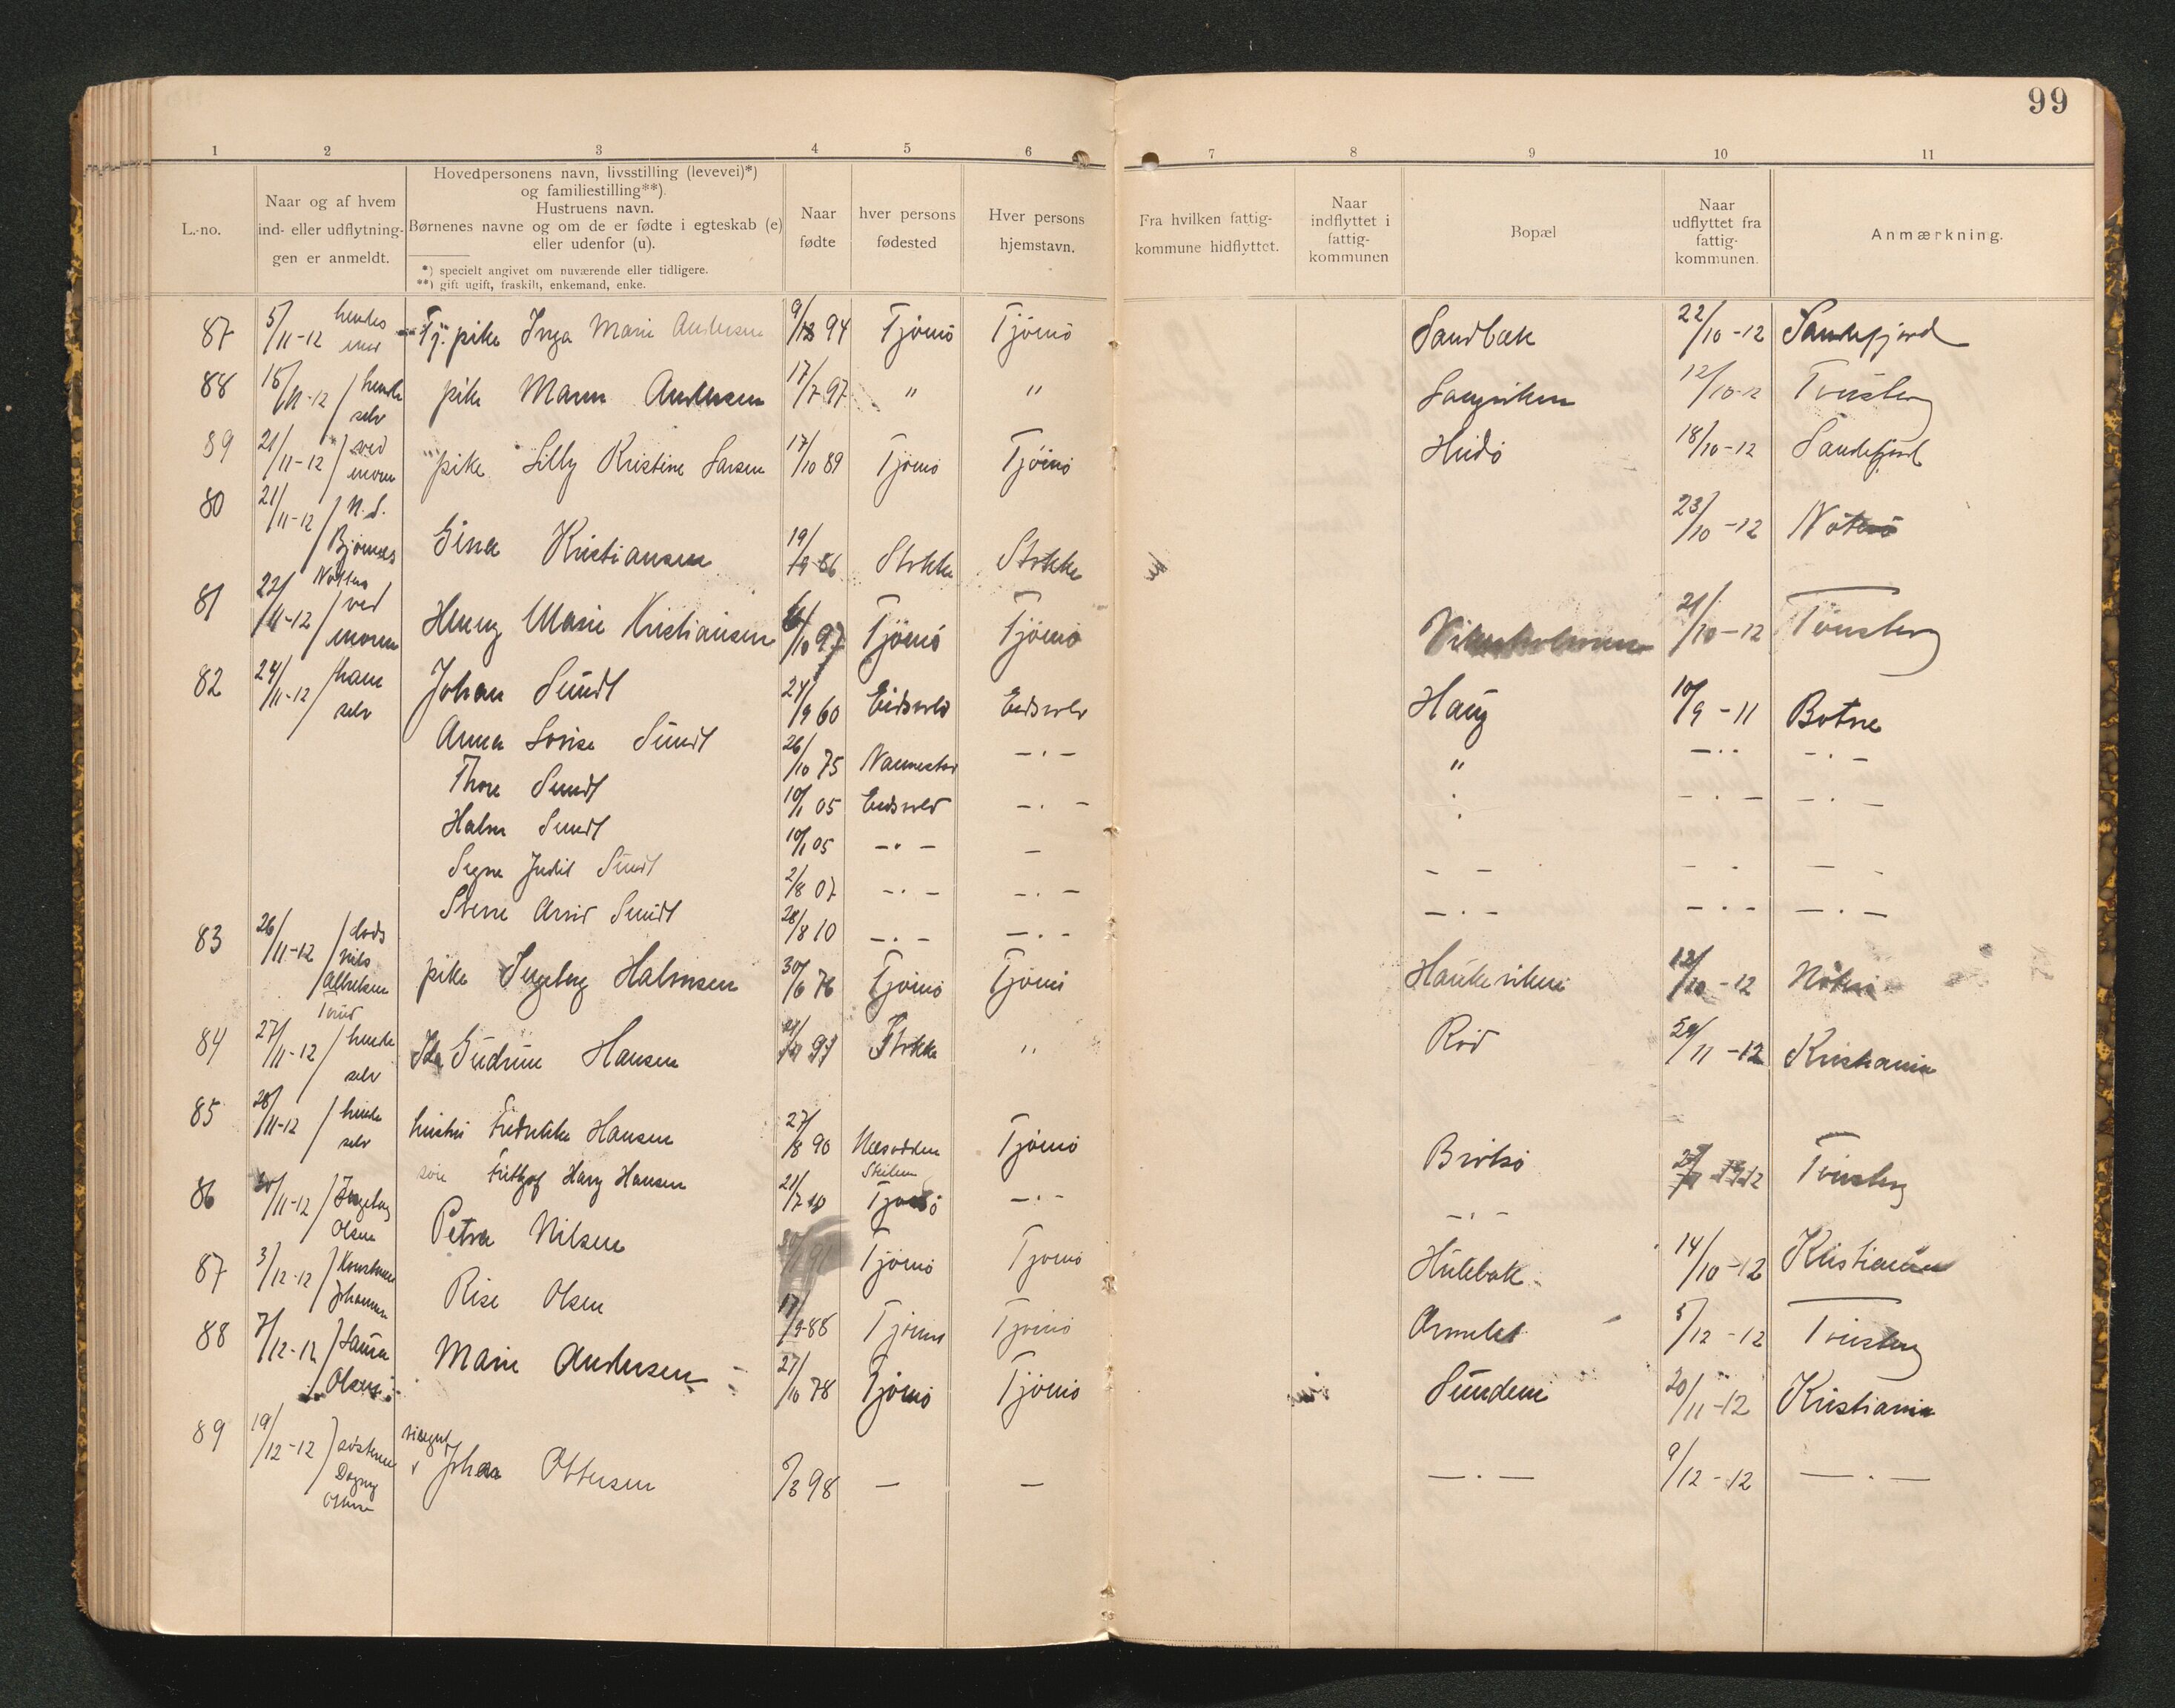 99
1 2 3 4 5 6 7 8 9 10 11
L.-no.
Naar og af hvem
ind- eller udflytnin-
gen er anmeldt.
Hovedpersonens navn, livsstilling (levevei)*)
og familiestilling**).
Hustruens navn.
Børnenes navne og om de er fødte i egteskab (e)
eller udenfor (u).
*) specielt angivet om nuværende eller tidligere.
**) gift ugift, fraskilt, enkemand, enke.
Naar
fødte
hver persons
fødested
Hver persons
hjemstavn.
Fra hvilken fattig-
kommune hidflyttet.
Naar
indflyttet i
fattig-
kommunen
Bopæl
Naar
udflyttet fra
fattig-
kommunen.
Anmærkning.
87 5/11-12 hendes mor Tj. pike Inga Marie Andersen 9/12 94 Tjømø Tjømø Sandbæk 22/10-12 Sandefjord
88 15/11-12 / hende selv pike Maren Andersen 17/7 97 " " 12/10-12 Tønsberg
89 21/11-12 / ved moren pike Lilly Kristine Larsen 17/10 89 Tjømø Tjømø Hvidø 18/10-12 Sandefjord
80 21/11-12 / N. S. Gina Kristiansen 19/9-86 Stokke Stokke 23/10-12 Nøterø
81 22/11-12 / ved moren Henny Marie Kristiansen /10 97 Tjømø Tjømø 21/10-12 Tønsberg
82 24/11-12 / ham selv Johan Sundt 24/9 60 Eidsvold Eidsvold Haug 10/9-11 Botne
Anna Lovise Sundt 26/10 75 Nannestad -.- " -.- -.-
Thore Sundt 10/1 05 Eidsvold -.- -.- -.-
Halvor Sundt 10/1 05 -.- -
Signe Judit Sundt 2/8 07 -.- -.- - - - - - -
Sverre Arvid Sundt 28/8 10 -.- -.- -.- -.- -.-
83 26/11-12 / lods Nils Albretsen pike Ingeborg Halvorsen 30/6 76 Tjømø Tjømø Haukeviken 12/10-12 Nøterø
84 27/11-12 / hende selv Ida Gudrun Hansen Stokke " Rød 29/11-12 Kristiania
85 28/11-12 / hende selv hustru Fredrikke Hansen 27/8 90 Næsodden Tjømø Brøtsø Tønsberg
søn Fritjof Harry Hansen 21/7 10 Tjømø -.- -.-
86 30/11-12 / Ingeborg Olsen Petra Nilsen 91 Tjømø Tjømø Hulebak 14/10-12 Kristiania
87 3/12-12 / Johannesen Olsen 17/9-88 Tjømø Tjømø 5/12-12 Tønsberg
88 7/12-12 / Laura Olsen Marie Andersen 27/10 78 Tjømø Tjømø Sundene 20/11-12 Kristiania
89 19/12-12 / søsteren Dagny Johan Ottersen /3 98 - - -.- 9/12-12 -.-